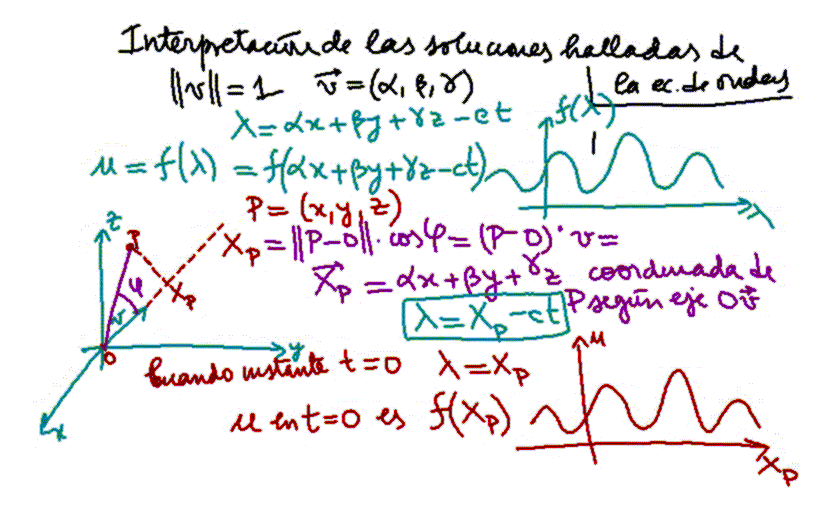 Interpretación de las soluciones halladas de
la ec. de ondas
||v|| = 1   v⃗ = (α, β, γ)
λ = αx + βy + γz - ct
f(λ)
u = f(λ) = f(αx + βy + γz - ct)
λ
P = (x, y, z)
X_P = ||P-O||·cosφ = (P-O)·v =
X⃗_P = αx + βy + γz   coordenada de
P según eje Ov⃗
λ = X_P - ct
z
P
φ
X_P
v
O
y
x
Cuando instante t=0   λ = X_P
u en t=0 es f(X_P)
u
X_P